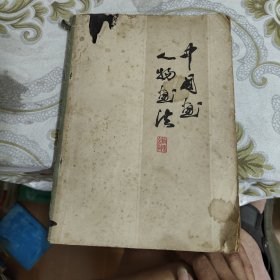 中国画
人物画法